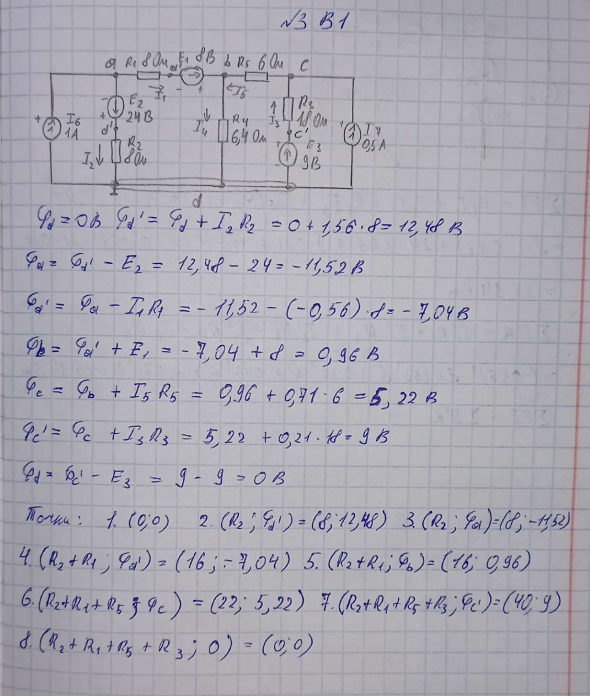 √3 В1
a R1 8 Ом a' E1 8 В b R5 6 Ом c
I1 I5
I6 1 А E2 24 В d' I2 R2 8 Ом I4 R4 6,4 Ом I3 R3 18 Ом c' E3 9 В I7 0,5 А
d
φd = 0 В φd' = φd + I2 R2 = 0 + 1,56 · 8 = 12,48 В
φa = φd' − E2 = 12,48 − 24 = −11,52 В
φa' = φa − I1 R1 = −11,52 − (−0,56) · 8 = −7,04 В
φb = φa' + E1 = −7,04 + 8 = 0,96 В
φc = φb + I5 R5 = 0,96 + 0,71 · 6 = 5,22 В
φc' = φc + I3 R3 = 5,22 + 0,21 · 18 = 9 В
φd = φc' − E3 = 9 − 9 = 0 В
Точки: 1. (0;0) 2. (R2; φd') = (8; 12,48) 3. (R2; φa) = (8; −11,52)
4. (R2+R1; φa') = (16; −7,04) 5. (R2+R1; φb) = (16; 0,96)
6. (R2+R1+R5; φc) = (22; 5,22) 7. (R2+R1+R5+R3; φc') = (40; 9)
8. (R2 + R1 + R5 + R3; 0) = (0;0)